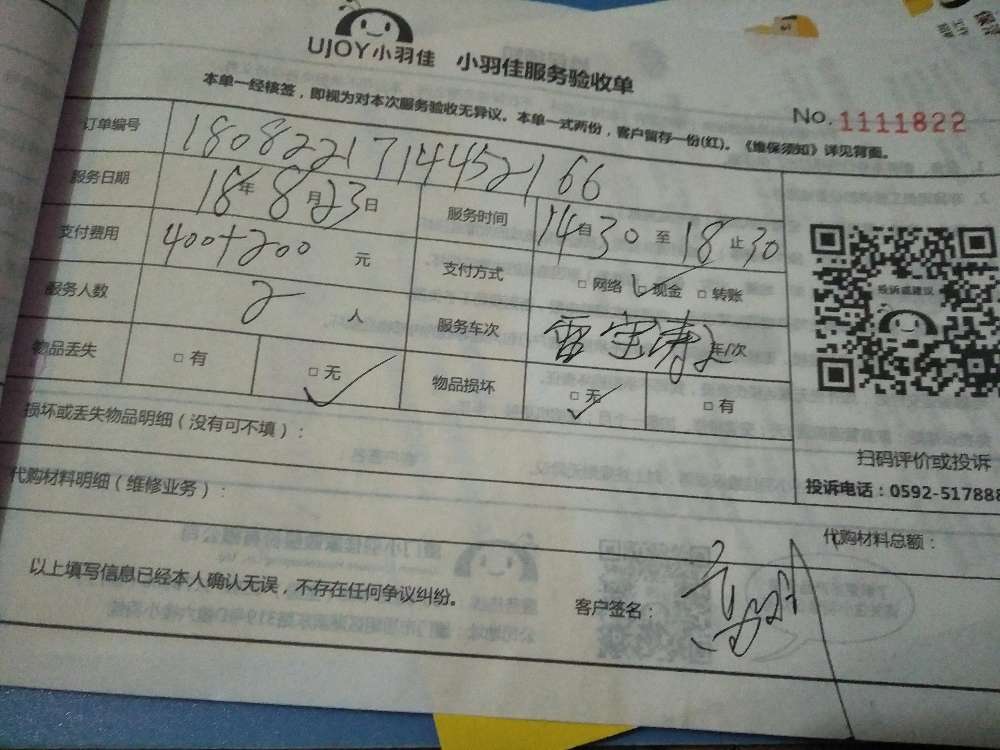 UJOY小羽佳 小羽佳服务验收单
No. 1111822
本单一经核签，即视为对本次服务验收无异议。本单一式两份，客户留存一份(红)。《维保须知》详见背面。
订单编号 1808221714452166
服务日期 18年8月23日 服务时间 14自30至18止30
支付费用 400+200元 支付方式 □网络 □现金 □转账
服务人数 2人 服务车次 年/次
物品丢失 □有 □无 物品损坏 □无 □有
投诉或建议
损坏或丢失物品明细（没有可不填）：
扫码评价或投诉
代购材料明细（维修业务）：
投诉电话：0592-517888
代购材料总额：
以上填写信息已经本人确认无误，不存在任何争议纠纷。 客户签名：